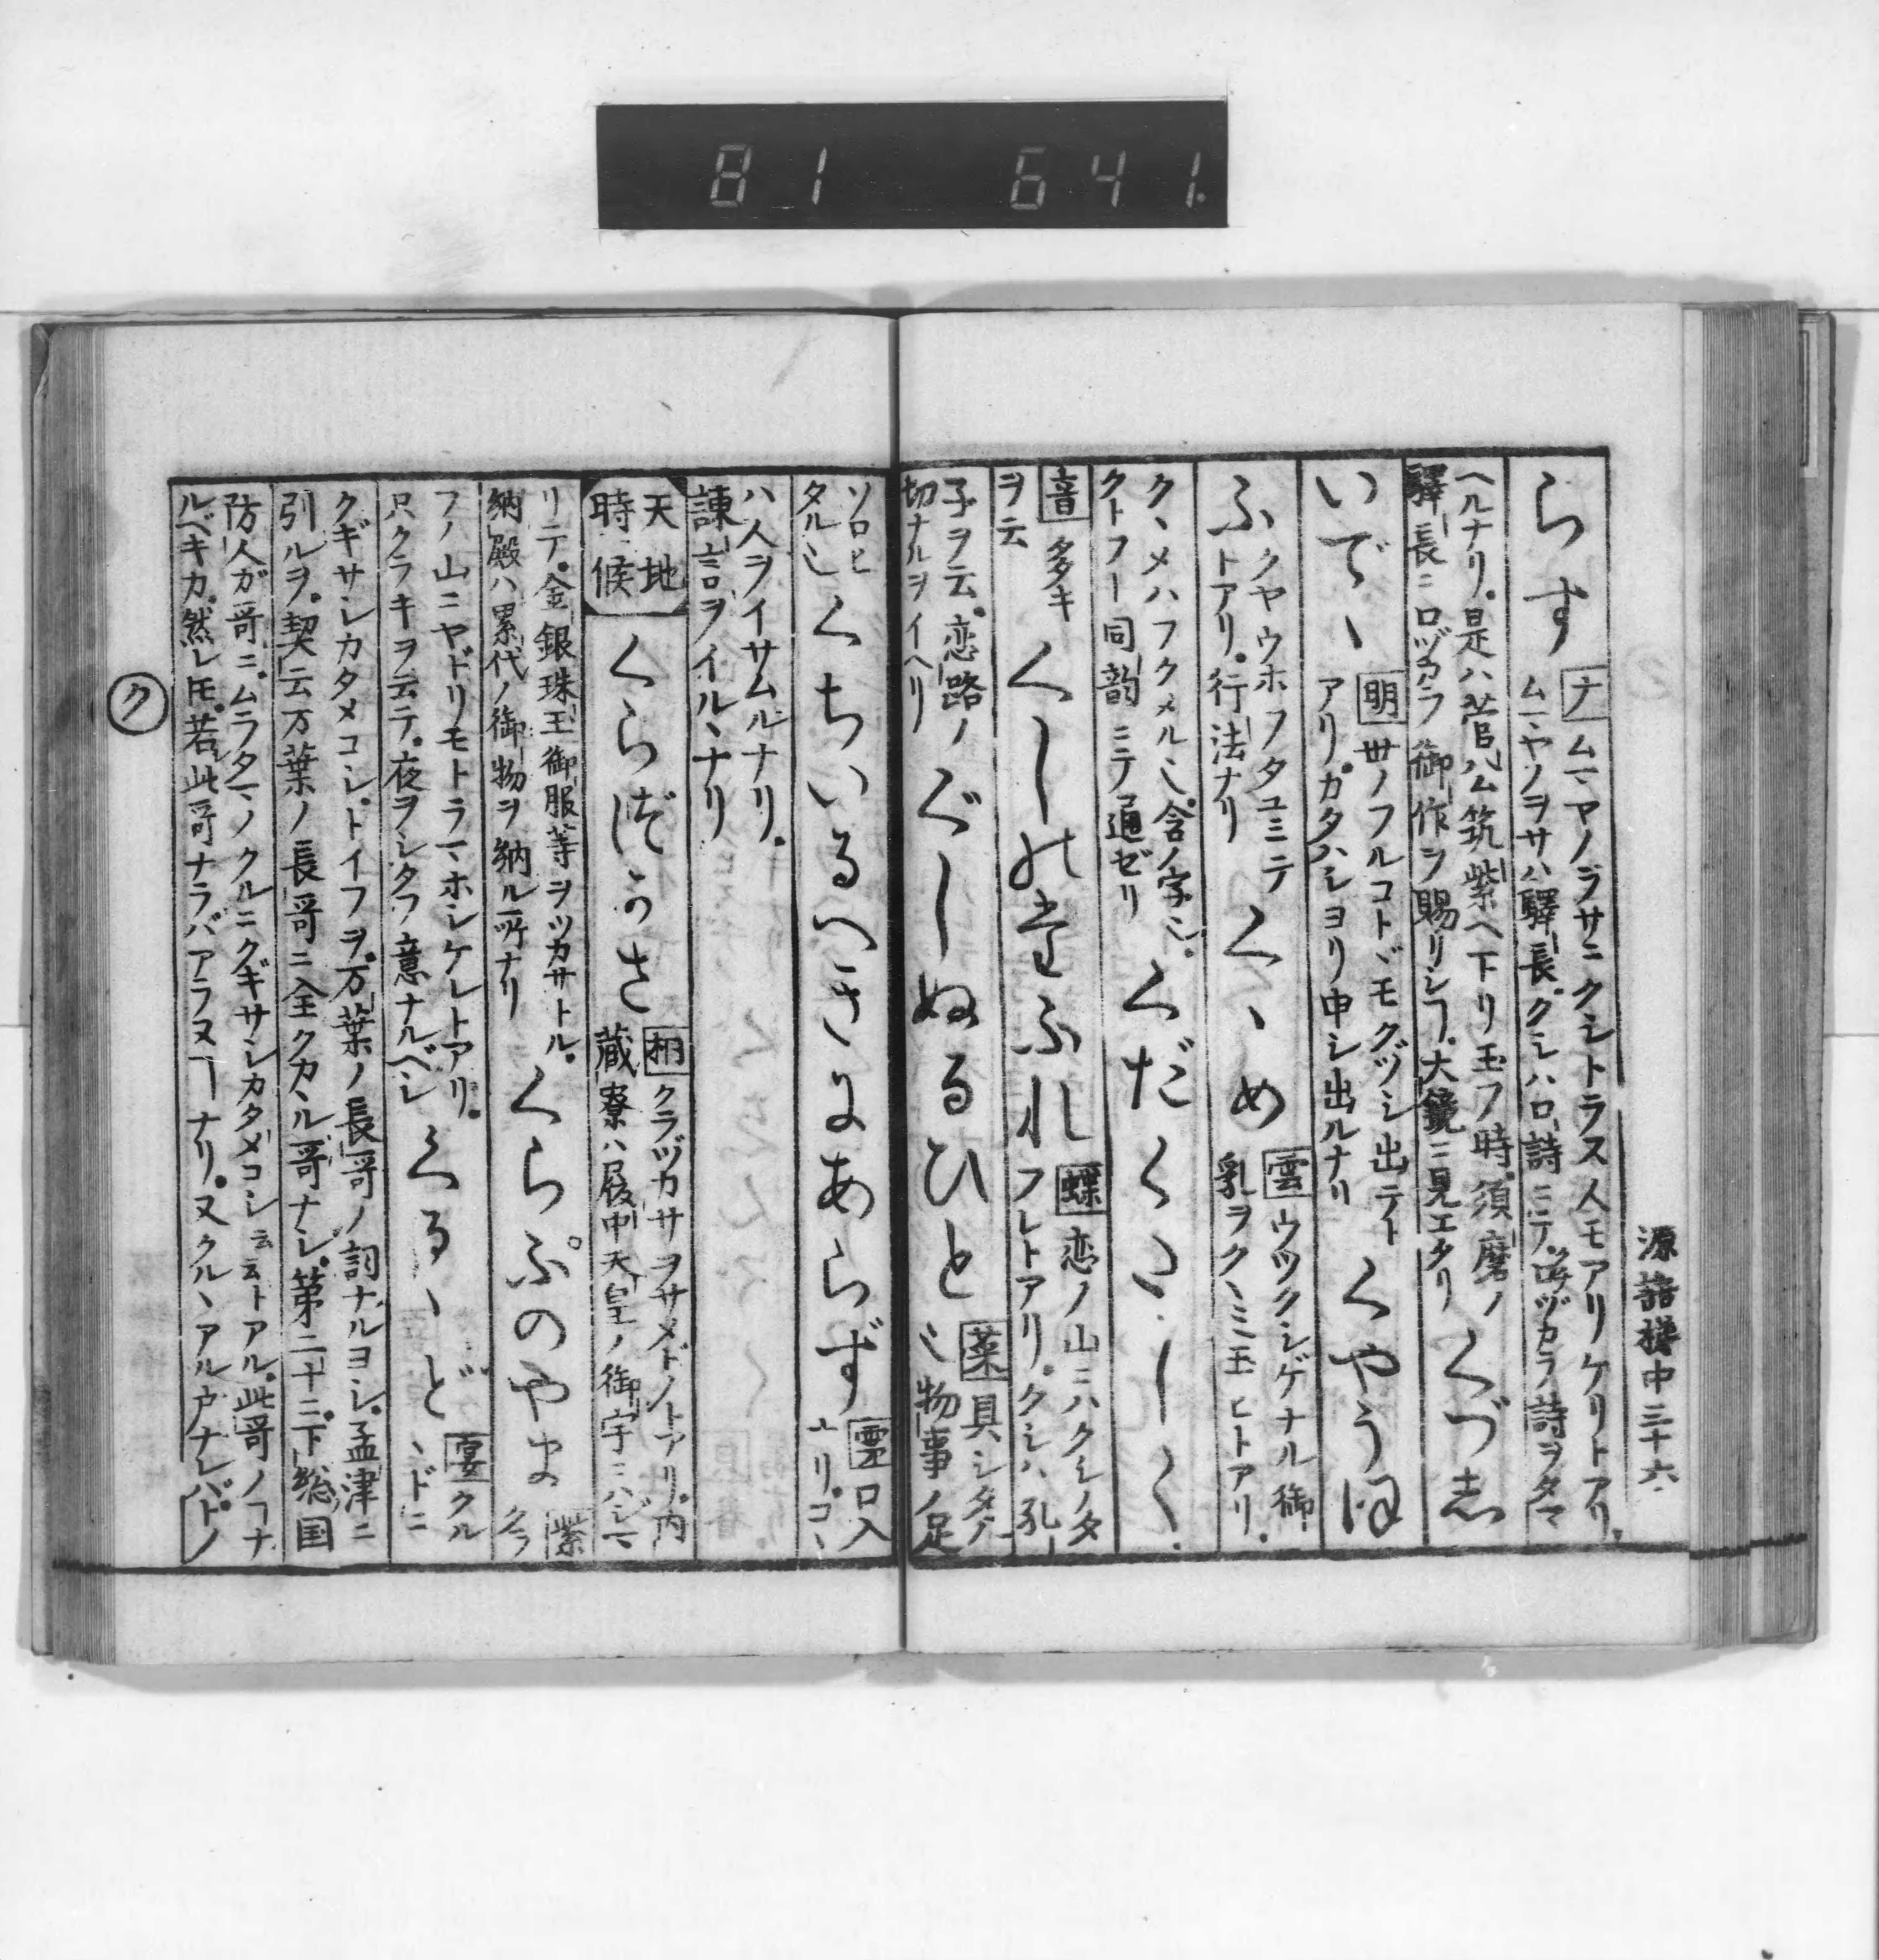 81 641.
源語梯中三十六
らす ナ ムマヤノヲサニクシトラス人モアリケリトアリ。
ムマヤノヲサハ驛長。クシハ口詩ニテ。口ヅカラ詩ヲタマ
ヘルナリ。是ハ菅公筑紫ヘ下リ玉フ時。須磨ノ
驛長ニ口ヅカラ御作ヲ賜リシ。大鏡ニ見エタリ くづし
いでゝ 明 世ノフルコトヾモクヅシ出テト
アリ。カタハシヨリ申シ出ルナリ くやうほ
ふ クヤウホフタユミテ
トアリ。行法ナリ くゝめ 雲 ウツクシゲナル御
乳ヲクヽミ玉ヒトアリ。
クヽメハフクメル也。含ノ字也。
クトフト同韻ニテ通ゼリ くだくだしく
音 多キ
ヲ云 くしのたふれ 蝶 恋ノ山ニハクシノタ
フレトアリ。クシハ孔
子ヲ云。恋路ノ
切ナルヲイヘリ ぐしぬるひと 菜 具シタル
也物事ノ足
ソロヒ
タル也 くちいるへきにあらず 雲 口入
ナリ。コヽ
ハ人ヲイサムルナリ。
諫言ヲイルヽナリ
天地
時候 くらづかさ 桐 クラヅカサヲサメドノトアリ。内
蔵寮ハ履中天皇ノ御宇ニハジマ
リテ。金銀珠玉御服等ヲツカサトル。
納殿ハ累代ノ御物ヲ納ル所ナリ くらぶのやま 紫
クラ
フノ山ニヤドリモトラマホシケレトアリ。
只クラキヲ云テ。夜ヲシタフ意ナルベシ くるゝど 宴 クル
ヽドニ
クギサシカタメコシ。トイフヲ。万葉ノ長哥ノ詞ナルヨシ。孟津ニ
引ルヲ。契云万葉ノ長哥ニ全クカヽル哥ナシ。第二十ニ。下総国
防人ガ哥ニ。ムラタマノクルニクギサシカタメコシ云云トアル。此哥ノナ
ルベキカ。然レモ。若此哥ナラバアラヌナリ。又クルヽアル戸ナレバドノ
ク